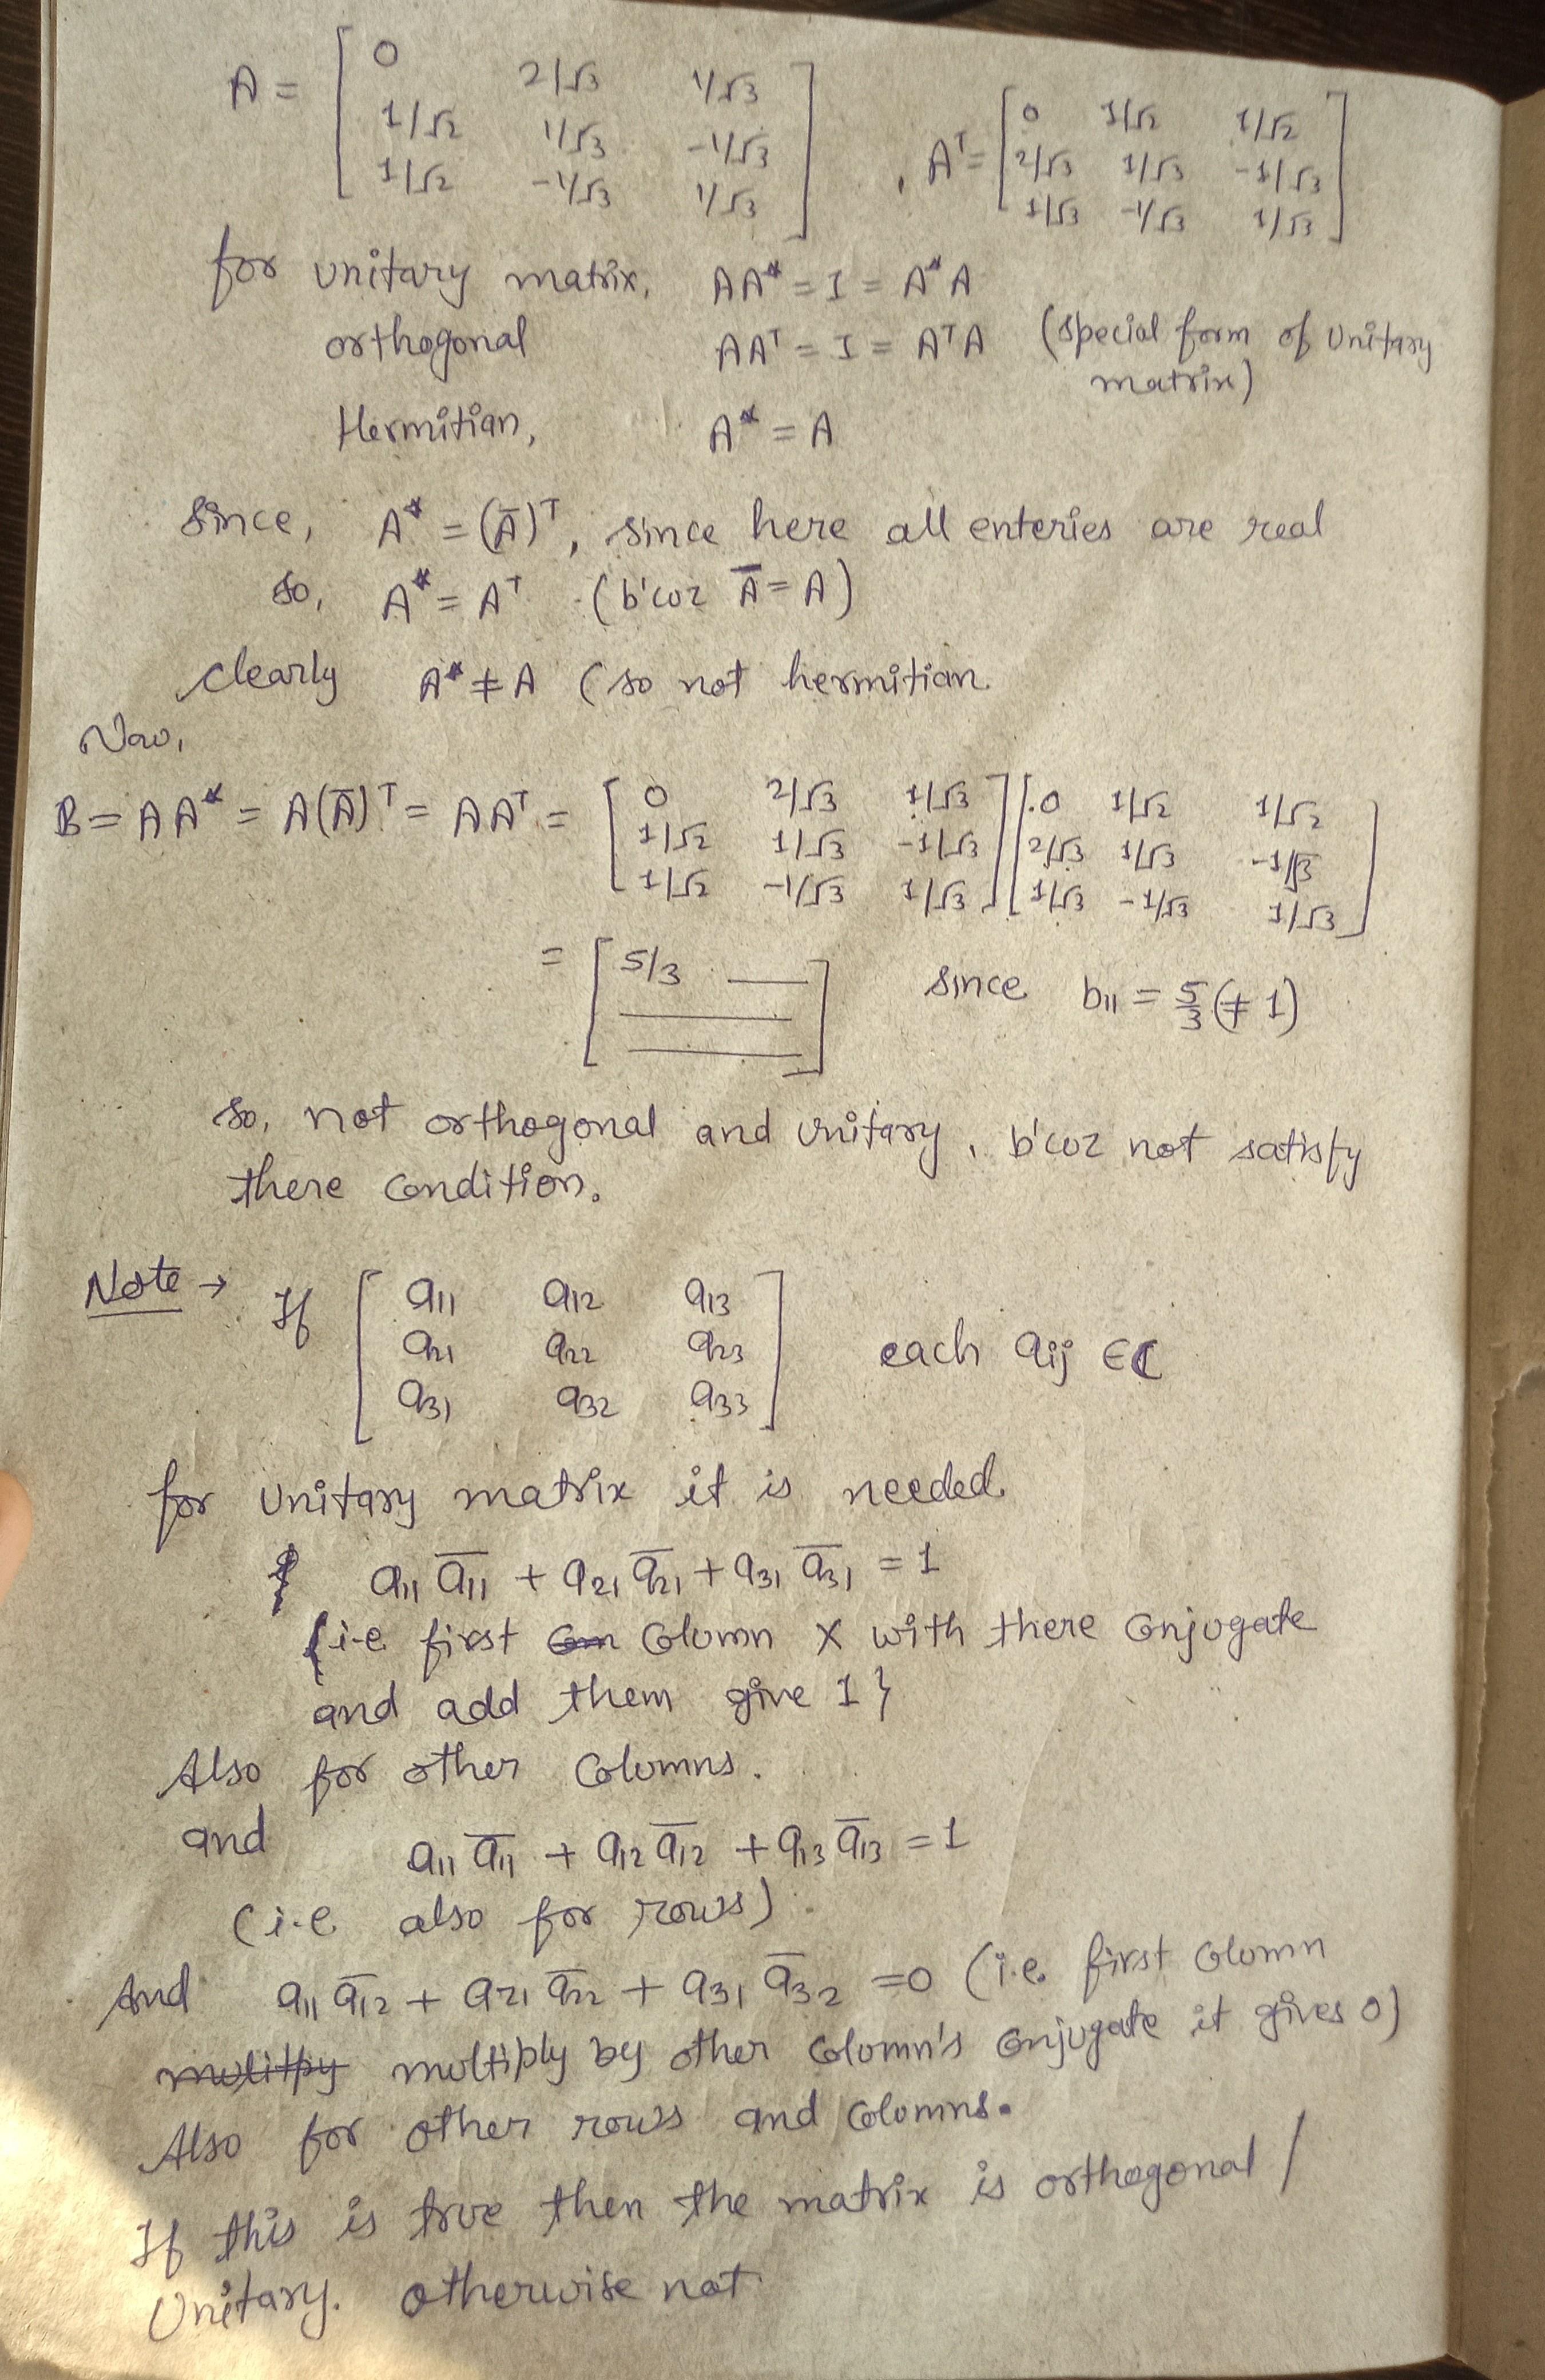 A = [ 0 2/√3 1/√3 , A^T = [ 0 1/√2 1/√2
1/√2 1/√3 -1/√3 2/√3 1/√3 -1/√3
1/√2 -1/√3 1/√3 ] 1/√3 -1/√3 1/√3 ]
for unitary matrix, AA* = I = A*A
orthogonal AA^T = I = A^T A (special form of unitary
matrix)
Hermitian, A* = A
Since, A* = (Ā)^T, since here all enteries are real
so, A* = A^T (b'coz Ā = A)
clearly A* ≠ A (so not hermitian
Now,
B = AA* = A(Ā)^T = AA^T = [ 0 2/√3 1/√3 ] [ 0 1/√2 1/√2 ]
1/√2 1/√3 -1/√3 2/√3 1/√3 -1/√3
1/√2 -1/√3 1/√3 1/√3 -1/√3 1/√3
= [ 5/3 — ] since b₁₁ = 5/3 (≠ 1)
so, not orthogonal and unitary, b'coz not satisfy
there condition.
Note → If [ a₁₁ a₁₂ a₁₃
a₂₁ a₂₂ a₂₃ each aᵢⱼ ∈ ℂ
a₃₁ a₃₂ a₃₃ ]
for unitary matrix it is needed
a₁₁ a̅₁₁ + a₂₁ a̅₂₁ + a₃₁ a̅₃₁ = 1
{i.e first column X with there conjugate
and add them give 1}
Also for other columns.
and a₁₁ a̅₁₁ + a₁₂ a̅₁₂ + a₁₃ a̅₁₃ = 1
(i.e also for rows)
And a₁₁ a̅₁₂ + a₂₁ a̅₂₂ + a₃₁ a̅₃₂ = 0 (i.e. first column
multiply by other column's conjugate it gives 0)
Also for other rows and columns.
If this is true then the matrix is orthogonal /
Unitary. otherwise not